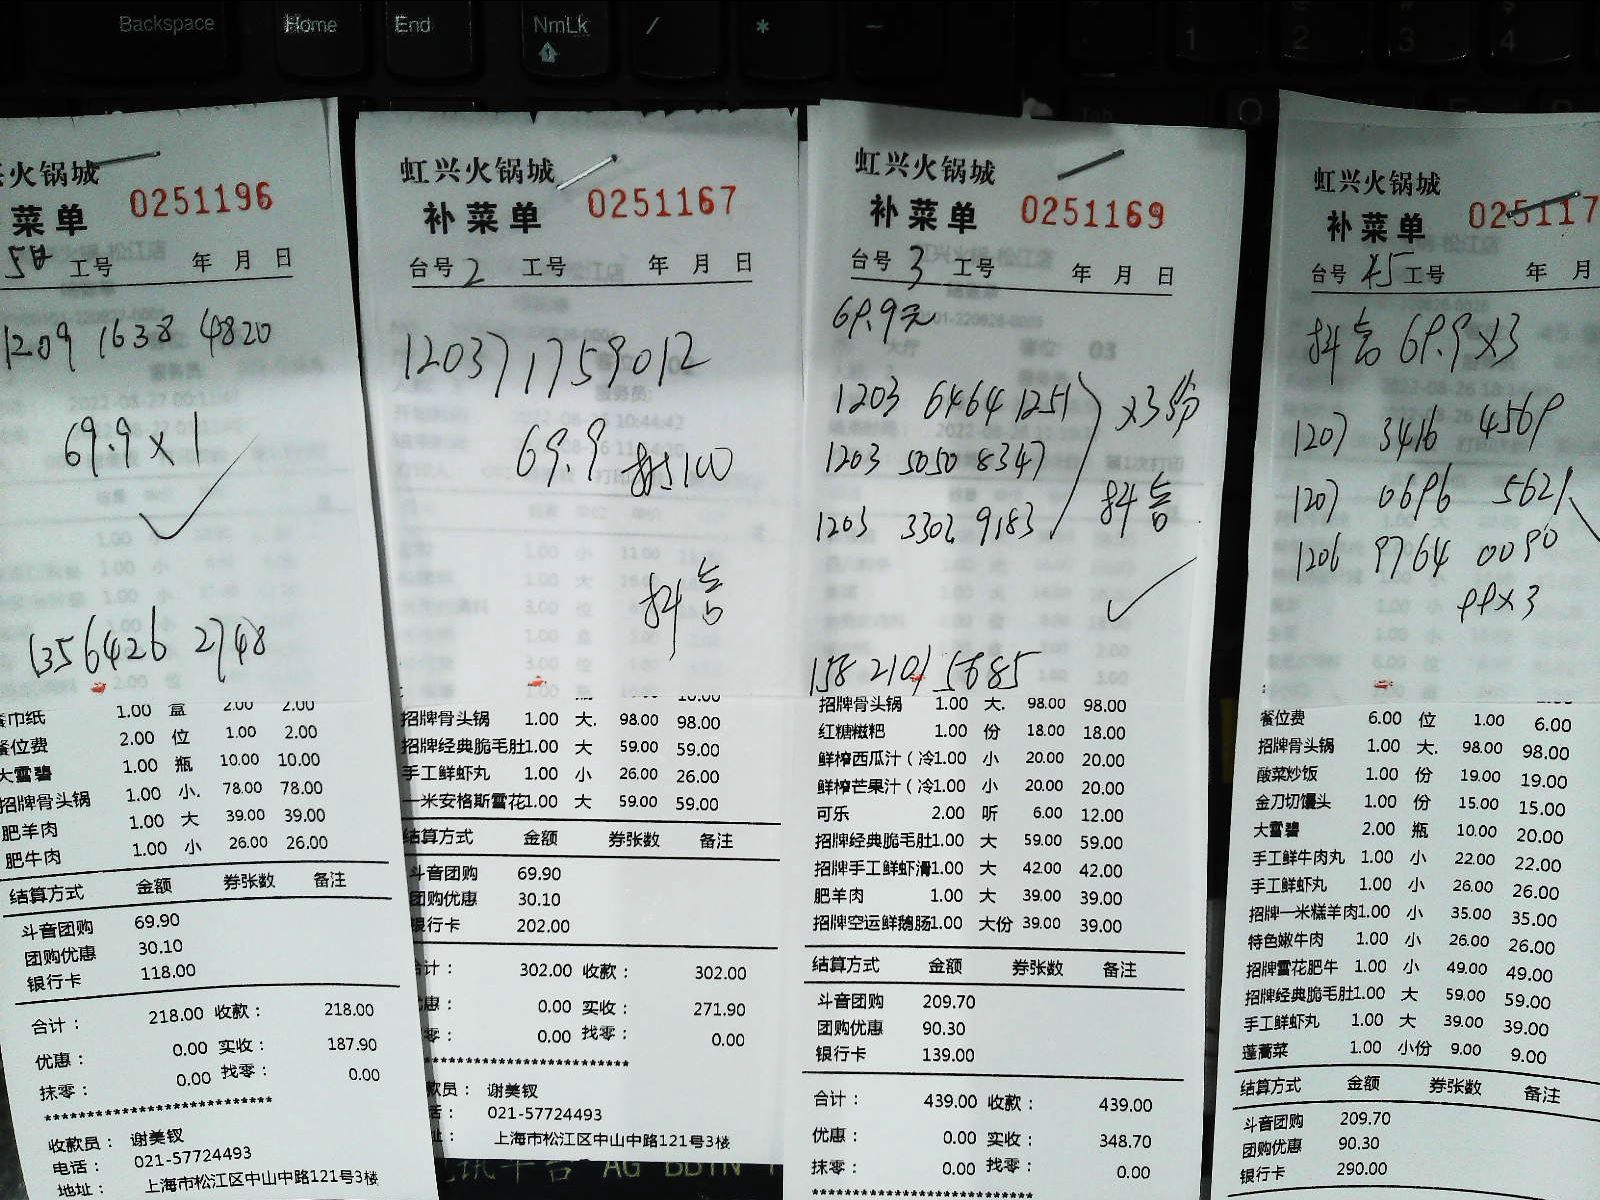 Backspace Home End NmLk / * −
1 2 3 4
火锅城
菜单 0251196
工号 年 月 日
1209 1638 4820
69.9x1
1356426 2748
餐巾纸 1.00 盒 2.00 2.00
餐位费 2.00 位 1.00 2.00
大雪碧 1.00 瓶 10.00 10.00
招牌骨头锅 1.00 小. 78.00 78.00
肥羊肉 1.00 大 39.00 39.00
肥牛肉 1.00 小 26.00 26.00
结算方式 金额 券张数 备注
斗音团购 69.90
团购优惠 30.10
银行卡 118.00
合计： 218.00 收款： 218.00
优惠： 0.00 实收： 187.90
抹零： 0.00 找零： 0.00
收款员： 谢美钗
电话： 021-57724493
地址： 上海市松江区中山中路121号3楼
虹兴火锅城
补菜单 0251167
台号 2 工号 年 月 日
120371759012
69.9 抵100
抖音
招牌骨头锅 1.00 大. 98.00 98.00
招牌经典脆毛肚1.00 大 59.00 59.00
手工鲜虾丸 1.00 小 26.00 26.00
一米安格斯雪花1.00 大 59.00 59.00
结算方式 金额 券张数 备注
斗音团购 69.90
团购优惠 30.10
银行卡 202.00
合计： 302.00 收款： 302.00
惠： 0.00 实收： 271.90
零： 0.00 找零： 0.00
款员： 谢美钗
话： 021-57724493
址： 上海市松江区中山中路121号3楼
虹兴火锅城
补菜单 0251169
台号 3 工号 年 月 日
69.9元
1203 6464 1251
x3份
1203 5050 8347
1203 3302 9183
抖音
158 2101 5685
招牌骨头锅 1.00 大. 98.00 98.00
红糖糍粑 1.00 份 18.00 18.00
鲜榨西瓜汁（冷1.00 小 20.00 20.00
鲜榨芒果汁（冷1.00 小 20.00 20.00
可乐 2.00 听 6.00 12.00
招牌经典脆毛肚1.00 大 59.00 59.00
招牌手工鲜虾滑1.00 大 42.00 42.00
肥羊肉 1.00 大 39.00 39.00
招牌空运鲜鹅肠1.00 大份 39.00 39.00
结算方式 金额 券张数 备注
斗音团购 209.70
团购优惠 90.30
银行卡 139.00
合计： 439.00 收款： 439.00
优惠： 0.00 实收： 348.70
抹零： 0.00 找零： 0.00
虹兴火锅城
补菜单 025117
台号 工号 年 月
抖音 69.9x3
1207 3416 4569
1207 0696 5621
1206 9764 0090
99x3
餐位费 6.00 位 1.00 6.00
招牌骨头锅 1.00 大. 98.00 98.00
酸菜炒饭 1.00 份 19.00 19.00
金刀切馒头 1.00 份 15.00 15.00
大雪碧 2.00 瓶 10.00 20.00
手工鲜牛肉丸 1.00 小 22.00 22.00
手工鲜虾丸 1.00 小 26.00 26.00
招牌一米糕羊肉1.00 小 35.00 35.00
特色嫩牛肉 1.00 小 26.00 26.00
招牌雪花肥牛 1.00 小 49.00 49.00
招牌经典脆毛肚1.00 大 59.00 59.00
手工鲜虾丸 1.00 大 39.00 39.00
蓬蒿菜 1.00 小份 9.00 9.00
结算方式 金额 券张数 备注
斗音团购 209.70
团购优惠 90.30
银行卡 290.00